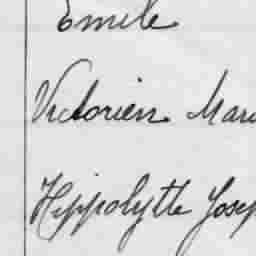 Emile
Victorien Mari
Hippolytte Josep